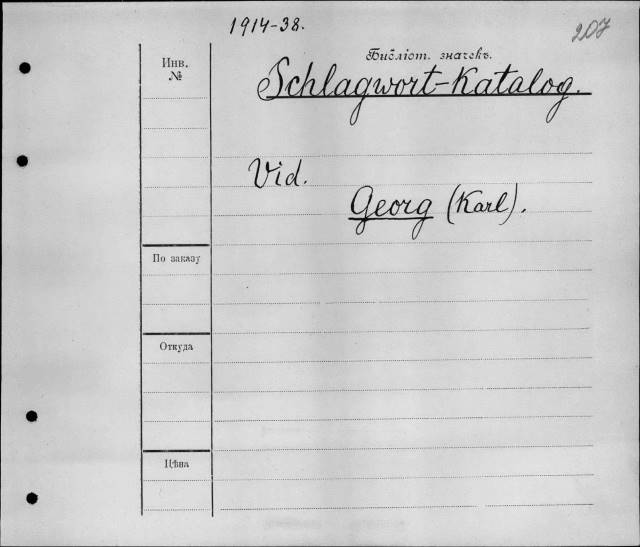 1914-38.
207
Библіот. значекъ.
Инв.
№
Schlagwort-Katalog.
Vid.
Georg (Karl).
По заказу
Откуда
Цѣна